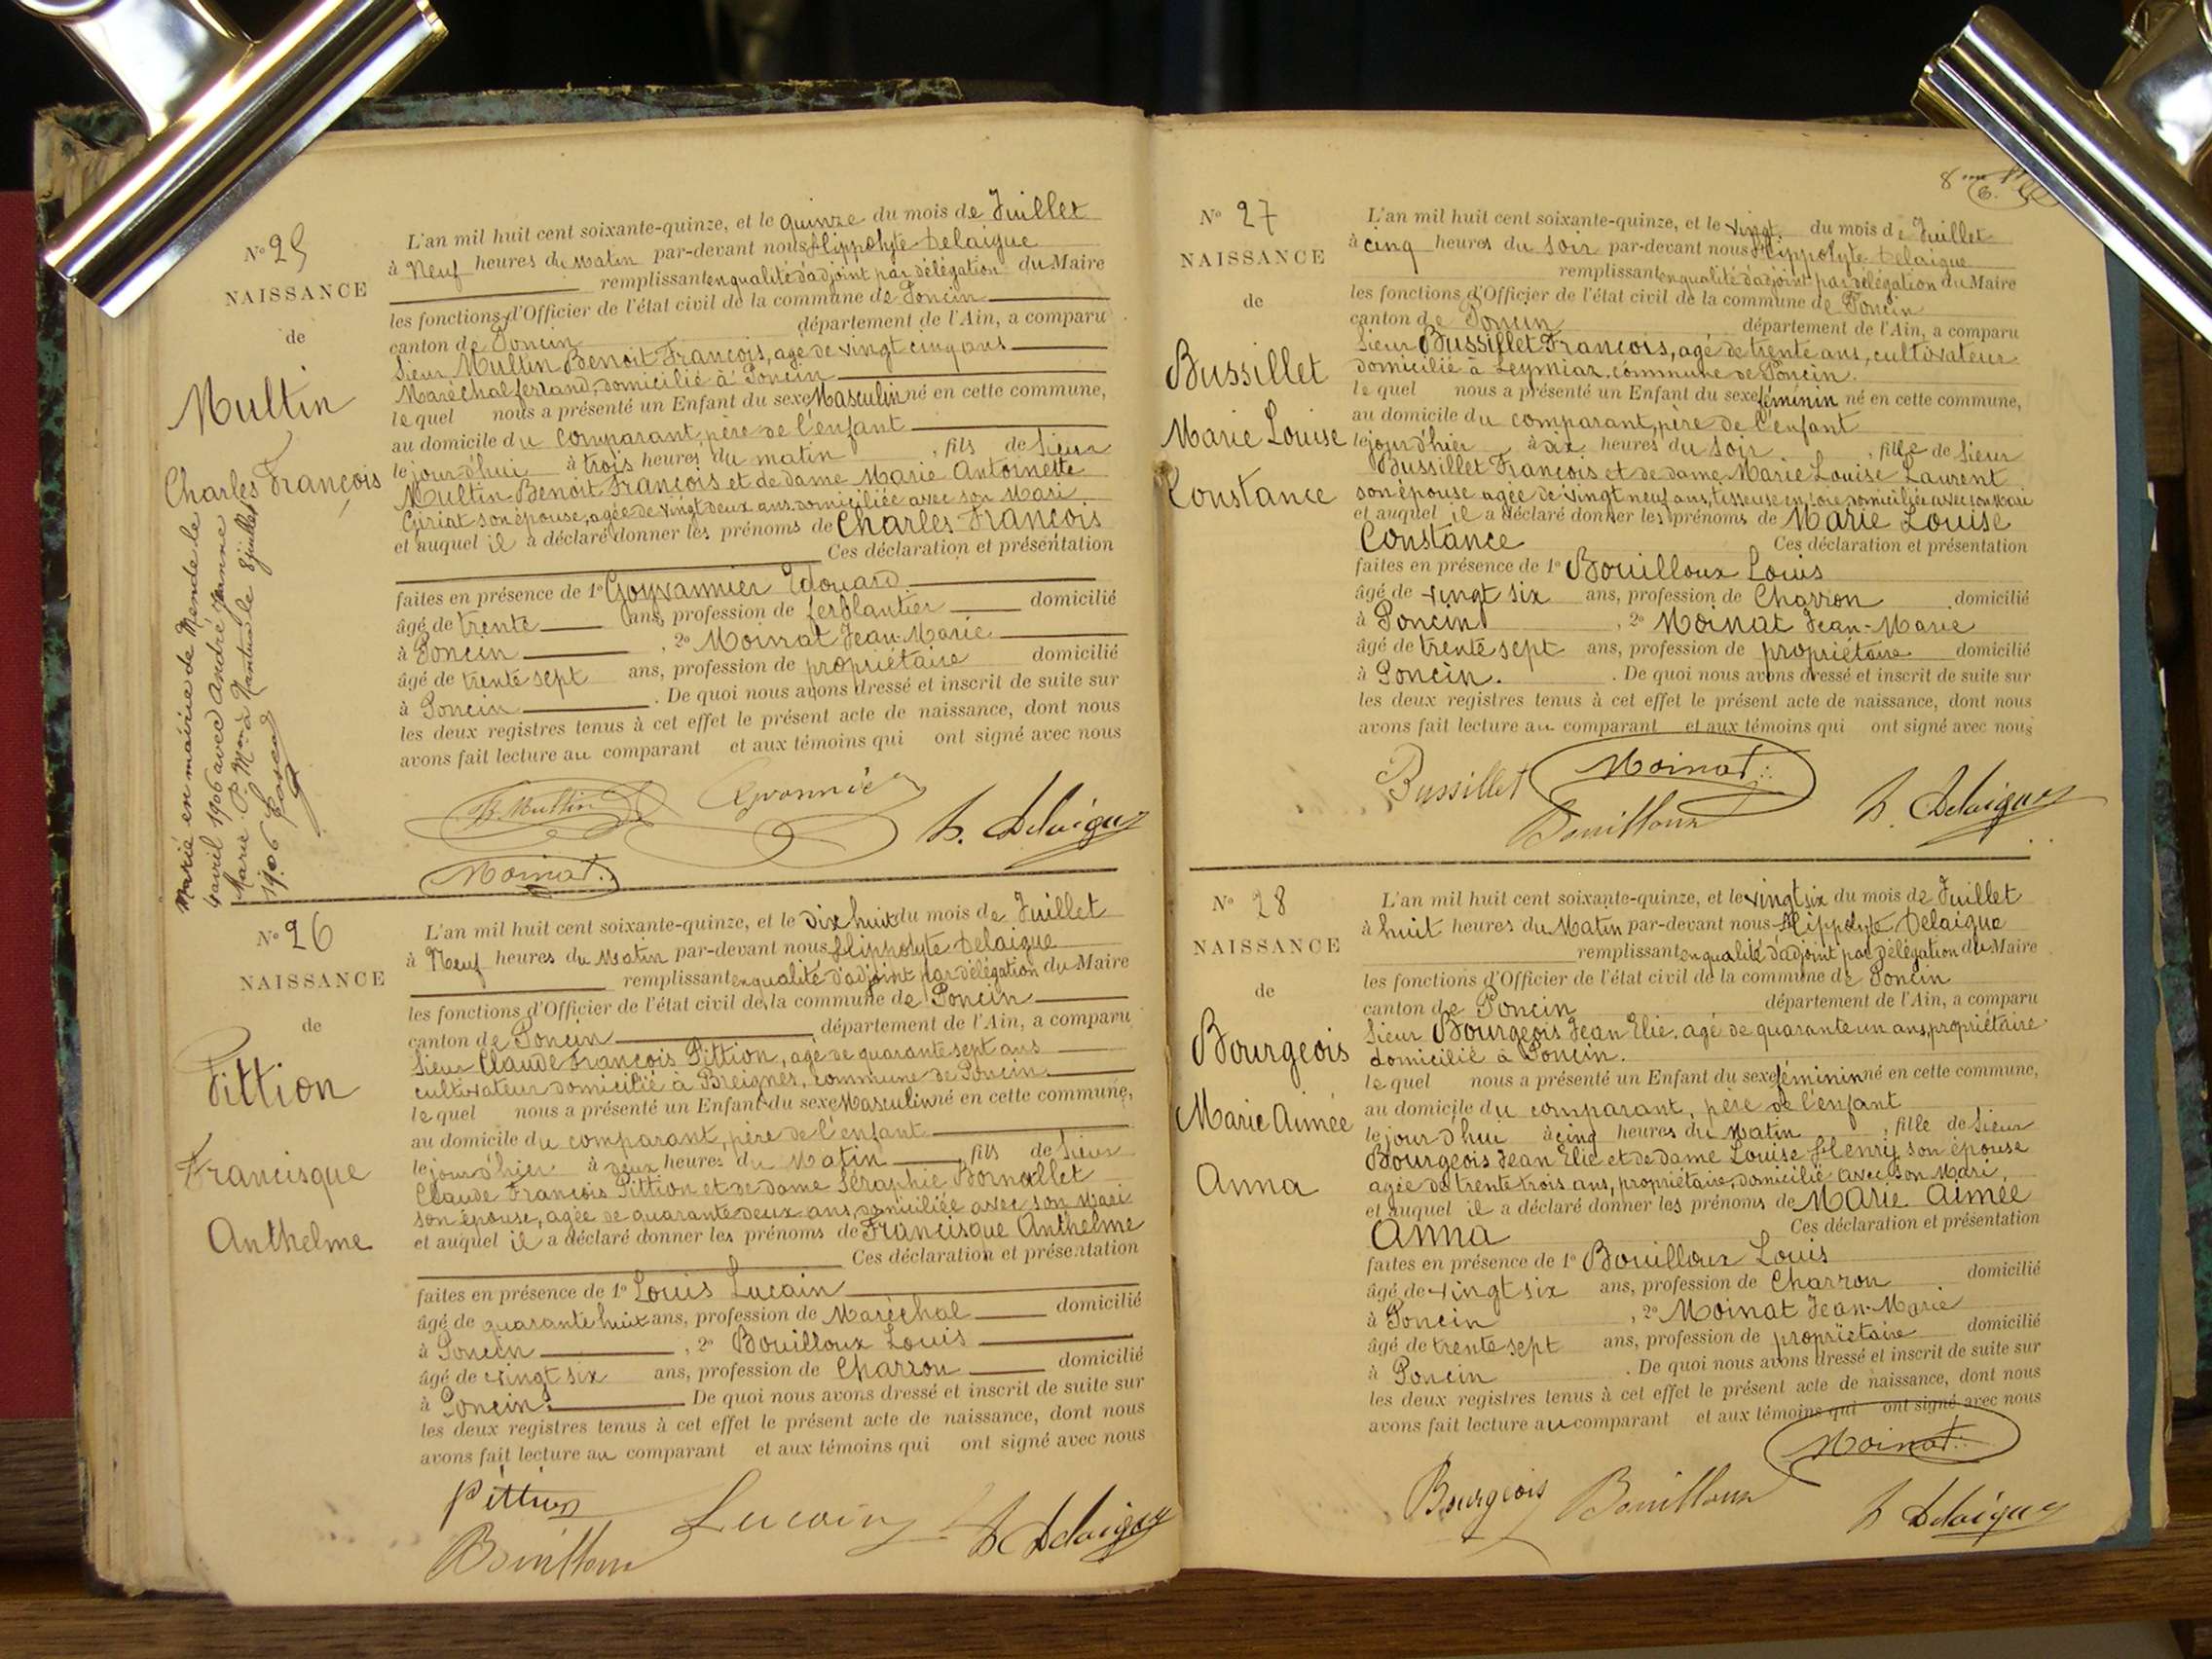 N° 25
NAISSANCE
de
Multin
Charles François
Marié en mairie de Mende le
4 avril 1906 avec André Jeanne
Marie P. Mon à Nantua le 8 juillet
1906
L'an mil huit cent soixante-quinze, et le quinze du mois de Juillet
à Neuf heures du Matin par-devant nous Hippolyte Delaigue
remplissant en qualité d'adjoint par délégation du Maire
les fonctions d'Officier de l'état civil de la commune de Poncin
canton de Poncin département de l'Ain, a comparu
Sieur Multin Benoit François, agé de vingt cinq ans
Maréchal ferrand, domicilié à Poncin
le quel nous a présenté un Enfant du sexe Masculin né en cette commune,
au domicile du comparant, père de l'enfant
le jour d'hui à trois heures du matin, fils de Sieur
Multin Benoit François et de dame Marie Antoinette
Guriat son épouse, agée de vingt deux ans domiciliée avec son Mari
et auquel il a déclaré donner les prénoms de Charles François
Ces déclaration et présentation
faites en présence de 1° Goyvannier Edouard
âgé de trente ans, profession de ferblantier domicilié
à Poncin, 2° Moinat Jean-Marie
âgé de trente sept ans, profession de propriétaire domicilié
à Poncin. De quoi nous avons dressé et inscrit de suite sur
les deux registres tenus à cet effet le présent acte de naissance, dont nous
avons fait lecture au comparant et aux témoins qui ont signé avec nous
B. Multin
H. Delaigue
Moinat
N° 26
NAISSANCE
de
Pittion
Francisque
Anthelme
L'an mil huit cent soixante-quinze, et le Dix huit du mois de Juillet
à Neuf heures du Matin par-devant nous Hippolyte Delaigue
remplissant en qualité d'adjoint par délégation du Maire
les fonctions d'Officier de l'état civil de la commune de Poncin
canton de Poncin département de l'Ain, a comparu
Sieur Claude François Pittion, agé de quarante sept ans
cultivateur domicilié à Breignes, commune de Poncin.
le quel nous a présenté un Enfant du sexe Masculin né en cette commune,
au domicile du comparant, père de l'enfant
le jour d'hier à deux heures du Matin, fils de Sieur
Claude François Pittion et de dame Séraphie Bornallet
son épouse, agée de quarante deux ans, domiciliée avec son Mari
et auquel il a déclaré donner les prénoms de Francisque Anthelme
Ces déclaration et présentation
faites en présence de 1° Louis Lucain
âgé de quarante huit ans, profession de Maréchal domicilié
à Poncin, 2° Bouilloux Louis
âgé de vingt six ans, profession de Charron domicilié
à Poncin. De quoi nous avons dressé et inscrit de suite sur
les deux registres tenus à cet effet le présent acte de naissance, dont nous
avons fait lecture au comparant et aux témoins qui ont signé avec nous
Pittion
Lucain
H Delaigue
Bouilloux
8me
N° 27
NAISSANCE
de
Bussillet
Marie Louise
Constance
L'an mil huit cent soixante-quinze, et le vingt. du mois de Juillet
à cinq heures du soir par-devant nous Hippolyte Delaigue
remplissant en qualité d'adjoint par délégation du Maire
les fonctions d'Officier de l'état civil de la commune de Poncin
canton de Poncin département de l'Ain, a comparu
Sieur Bussillet François, agé de trente ans, cultivateur
domicilié à Leymiaz. commune de Poncin.
le quel nous a présenté un Enfant du sexe féminin né en cette commune,
au domicile du comparant, père de l'enfant
le jour d'hier à six heures du soir, fille de Sieur
Bussillet François et de dame Marie Louise Laurent
son épouse agée de vingt neuf ans, tisseuse en soie domiciliée avec son Mari
et auquel il a déclaré donner les prénoms de Marie Louise
Constance Ces déclaration et présentation
faites en présence de 1° Bouilloux Louis
âgé de vingt six ans, profession de Charron domicilié
à Poncin, 2° Moinat Jean-Marie
âgé de trente sept ans, profession de propriétaire domicilié
à Poncin. De quoi nous avons dressé et inscrit de suite sur
les deux registres tenus à cet effet le présent acte de naissance, dont nous
avons fait lecture au comparant et aux témoins qui ont signé avec nous
Bussillet Moinat
Bouilloux H. Delaigue
N° 28
NAISSANCE
de
Bourgeois
Marie Aimée
Anna
L'an mil huit cent soixante-quinze, et le vingt six du mois de Juillet
à huit heures du Matin par-devant nous Hippolyte Delaigue
remplissant en qualité d'adjoint par délégation du Maire
les fonctions d'Officier de l'état civil de la commune de Poncin
canton de Poncin département de l'Ain, a comparu
Sieur Bourgeois Jean Elie. agé de quarante un ans, propriétaire
domicilié à Poncin.
le quel nous a présenté un Enfant du sexe féminin né en cette commune,
au domicile du comparant, père de l'enfant
le jour d'hui à cinq heures du Matin, fille de Sieur
Bourgeois Jean Elie et de dame Louise Henry son épouse
agée de trente trois ans, propriétaire, domicilié avec son Mari,
et auquel il a déclaré donner les prénoms de Marie Aimée
Anna Ces déclaration et présentation
faites en présence de 1° Bouilloux Louis
âgé de vingt six ans, profession de Charron domicilié
à Poncin, 2° Moinat Jean-Marie
âgé de trente sept ans, profession de propriétaire domicilié
à Poncin. De quoi nous avons dressé et inscrit de suite sur
les deux registres tenus à cet effet le présent acte de naissance, dont nous
avons fait lecture au comparant et aux témoins qui ont signé avec nous
Moinat
Bourgeois Bouilloux H Delaigue